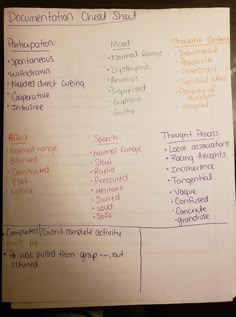 Documentation Cheat Sheet
Participation:
• Spontaneous
• withdrawn
• Needed direct cueing
• Cooperative
• Intrusive
Mood
• Normal Range
• Dysthymic
• Anxious
• Depressed
• Euphoric
• Guilty
Thought Content
• Delusional
• Paranoia
• Obsession
• Suicidal ideas
• Poverty of thought
• magical
Affect:
• Normal range
• Blunted
• Constricted
• Flat
• Labile
Speech
• Normal Range
• Slow
• Rapid
• Pressured
• Hesitant
• Slurred
• Loud
• Soft
Thought Process
• Loose associations
• Racing thoughts
• Incoherence
• Tangential
• Vague
• Confused
• Concrete
• grandiose
• Completed/Didn't complete activity
• Pt was pulled from group ..., but
returned.